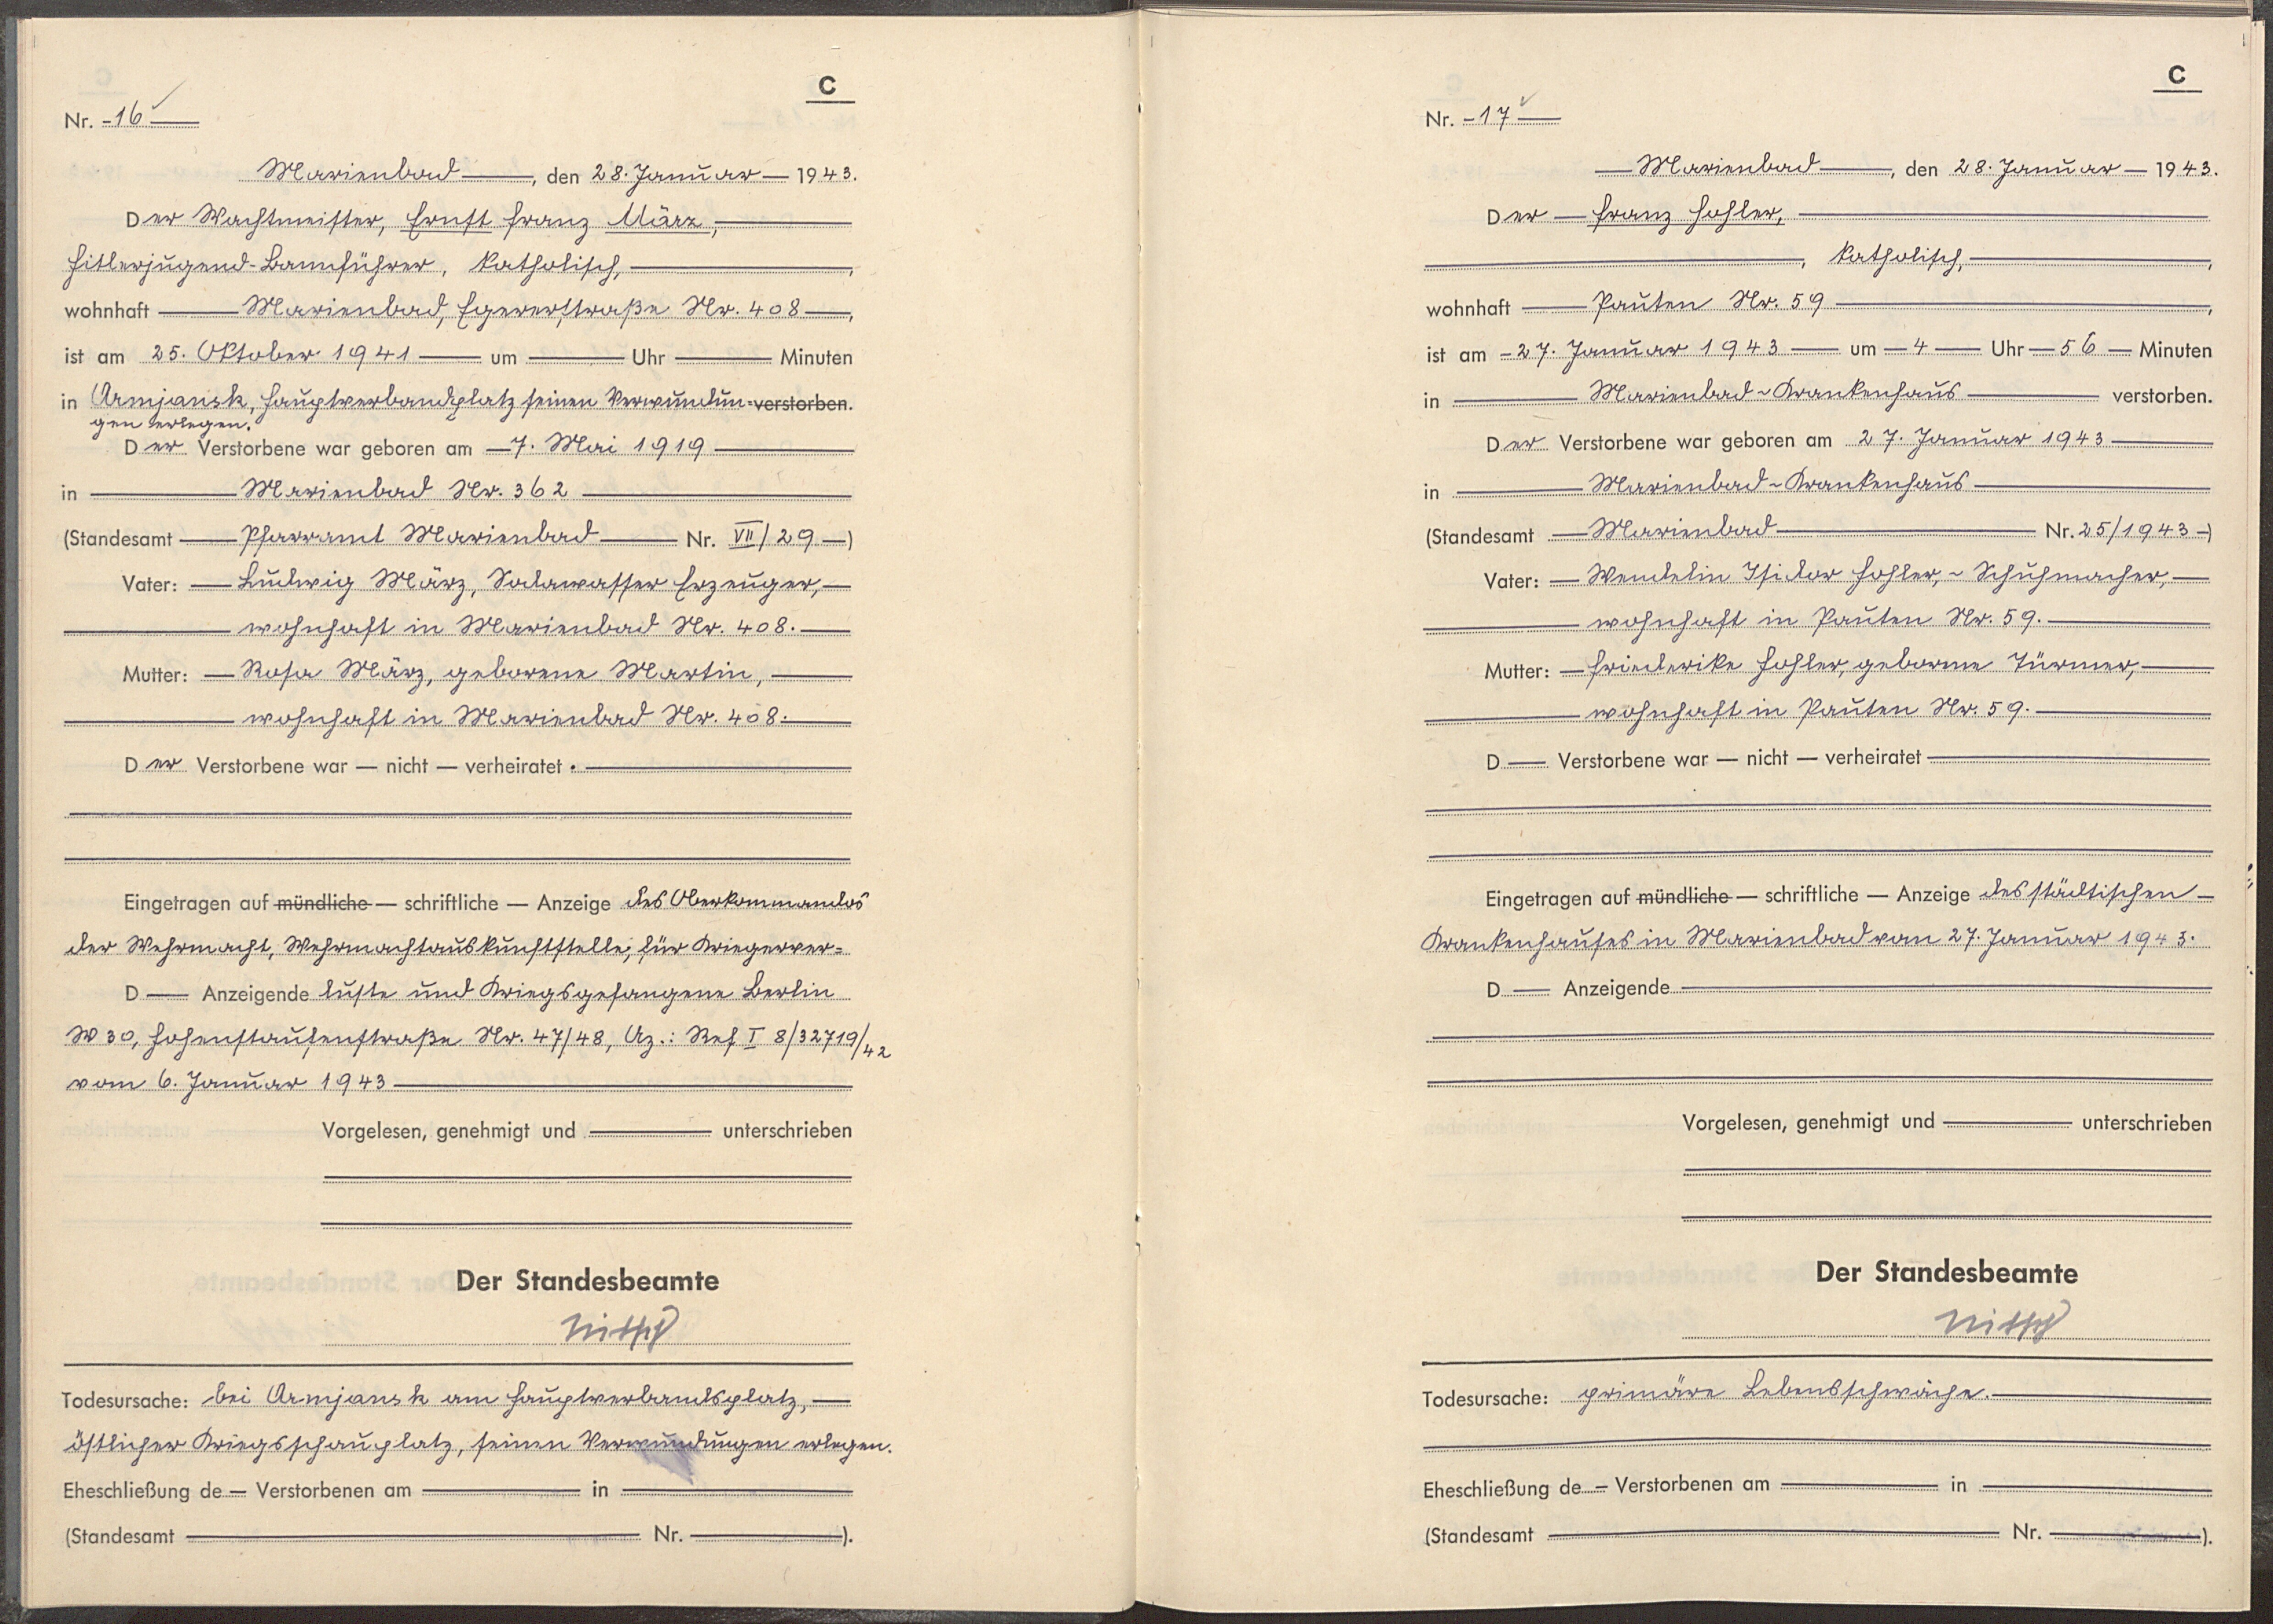 C
Nr. -16
Marienbad, den 28. Januar 1943.
Der Wachtmeister, Ernst Franz März,
Hitlerjugend-Bannführer, katholisch,
wohnhaft Marienbad, Egererstraße Nr. 408,
ist am 25. Oktober 1941 um Uhr Minuten
in Armjansk, Hauptverbandplatz seinen Verwundun- verstorben.
gen erlegen.
Der Verstorbene war geboren am 7. Mai 1919
in Marienbad Nr. 362
(Standesamt Pfarramt Marienbad Nr. VII/29)
Vater: Ludwig März, Sodawasser Erzeuger,
wohnhaft in Marienbad Nr. 408.
Mutter: Rosa März, geborene Martin,
wohnhaft in Marienbad Nr. 408.
Der Verstorbene war — nicht — verheiratet.
Eingetragen auf mündliche — schriftliche — Anzeige des Oberkommandos
der Wehrmacht, Wehrmachtauskunftstelle, für Kriegerver=
D Anzeigende luste und Kriegsgefangene Berlin
W 30, Hohenstaufenstraße Nr. 47/48, Az.: Ref I 8/32719/42
vom 6. Januar 1943
Vorgelesen, genehmigt und unterschrieben
Der Standesbeamte
Nitsch
Todesursache: bei Armjansk am Hauptverbandsplatz,
östlicher Kriegsschauplatz, seinen Verwundungen erlegen.
Eheschließung de Verstorbenen am in
(Standesamt Nr. ).
C
Nr. -17
Marienbad, den 28. Januar 1943.
Der Franz Hohler,
, katholisch,
wohnhaft Pauten Nr. 59,
ist am 27. Januar 1943 um 4 Uhr 56 Minuten
in Marienbad-Krankenhaus verstorben.
Der Verstorbene war geboren am 27. Januar 1943
in Marienbad-Krankenhaus
(Standesamt Marienbad Nr. 25/1943)
Vater: Wendelin Isidor Hohler, Schuhmacher,
wohnhaft in Pauten Nr. 59.
Mutter: Friederike Hohler, geborene Türmer,
wohnhaft in Pauten Nr. 59.
D Verstorbene war — nicht — verheiratet
Eingetragen auf mündliche — schriftliche — Anzeige des städtischen
Krankenhauses in Marienbad vom 27. Januar 1943.
D Anzeigende
Vorgelesen, genehmigt und unterschrieben
Der Standesbeamte
Nitsch
Todesursache: primäre Lebensschwäche.
Eheschließung de Verstorbenen am in
(Standesamt Nr. ).